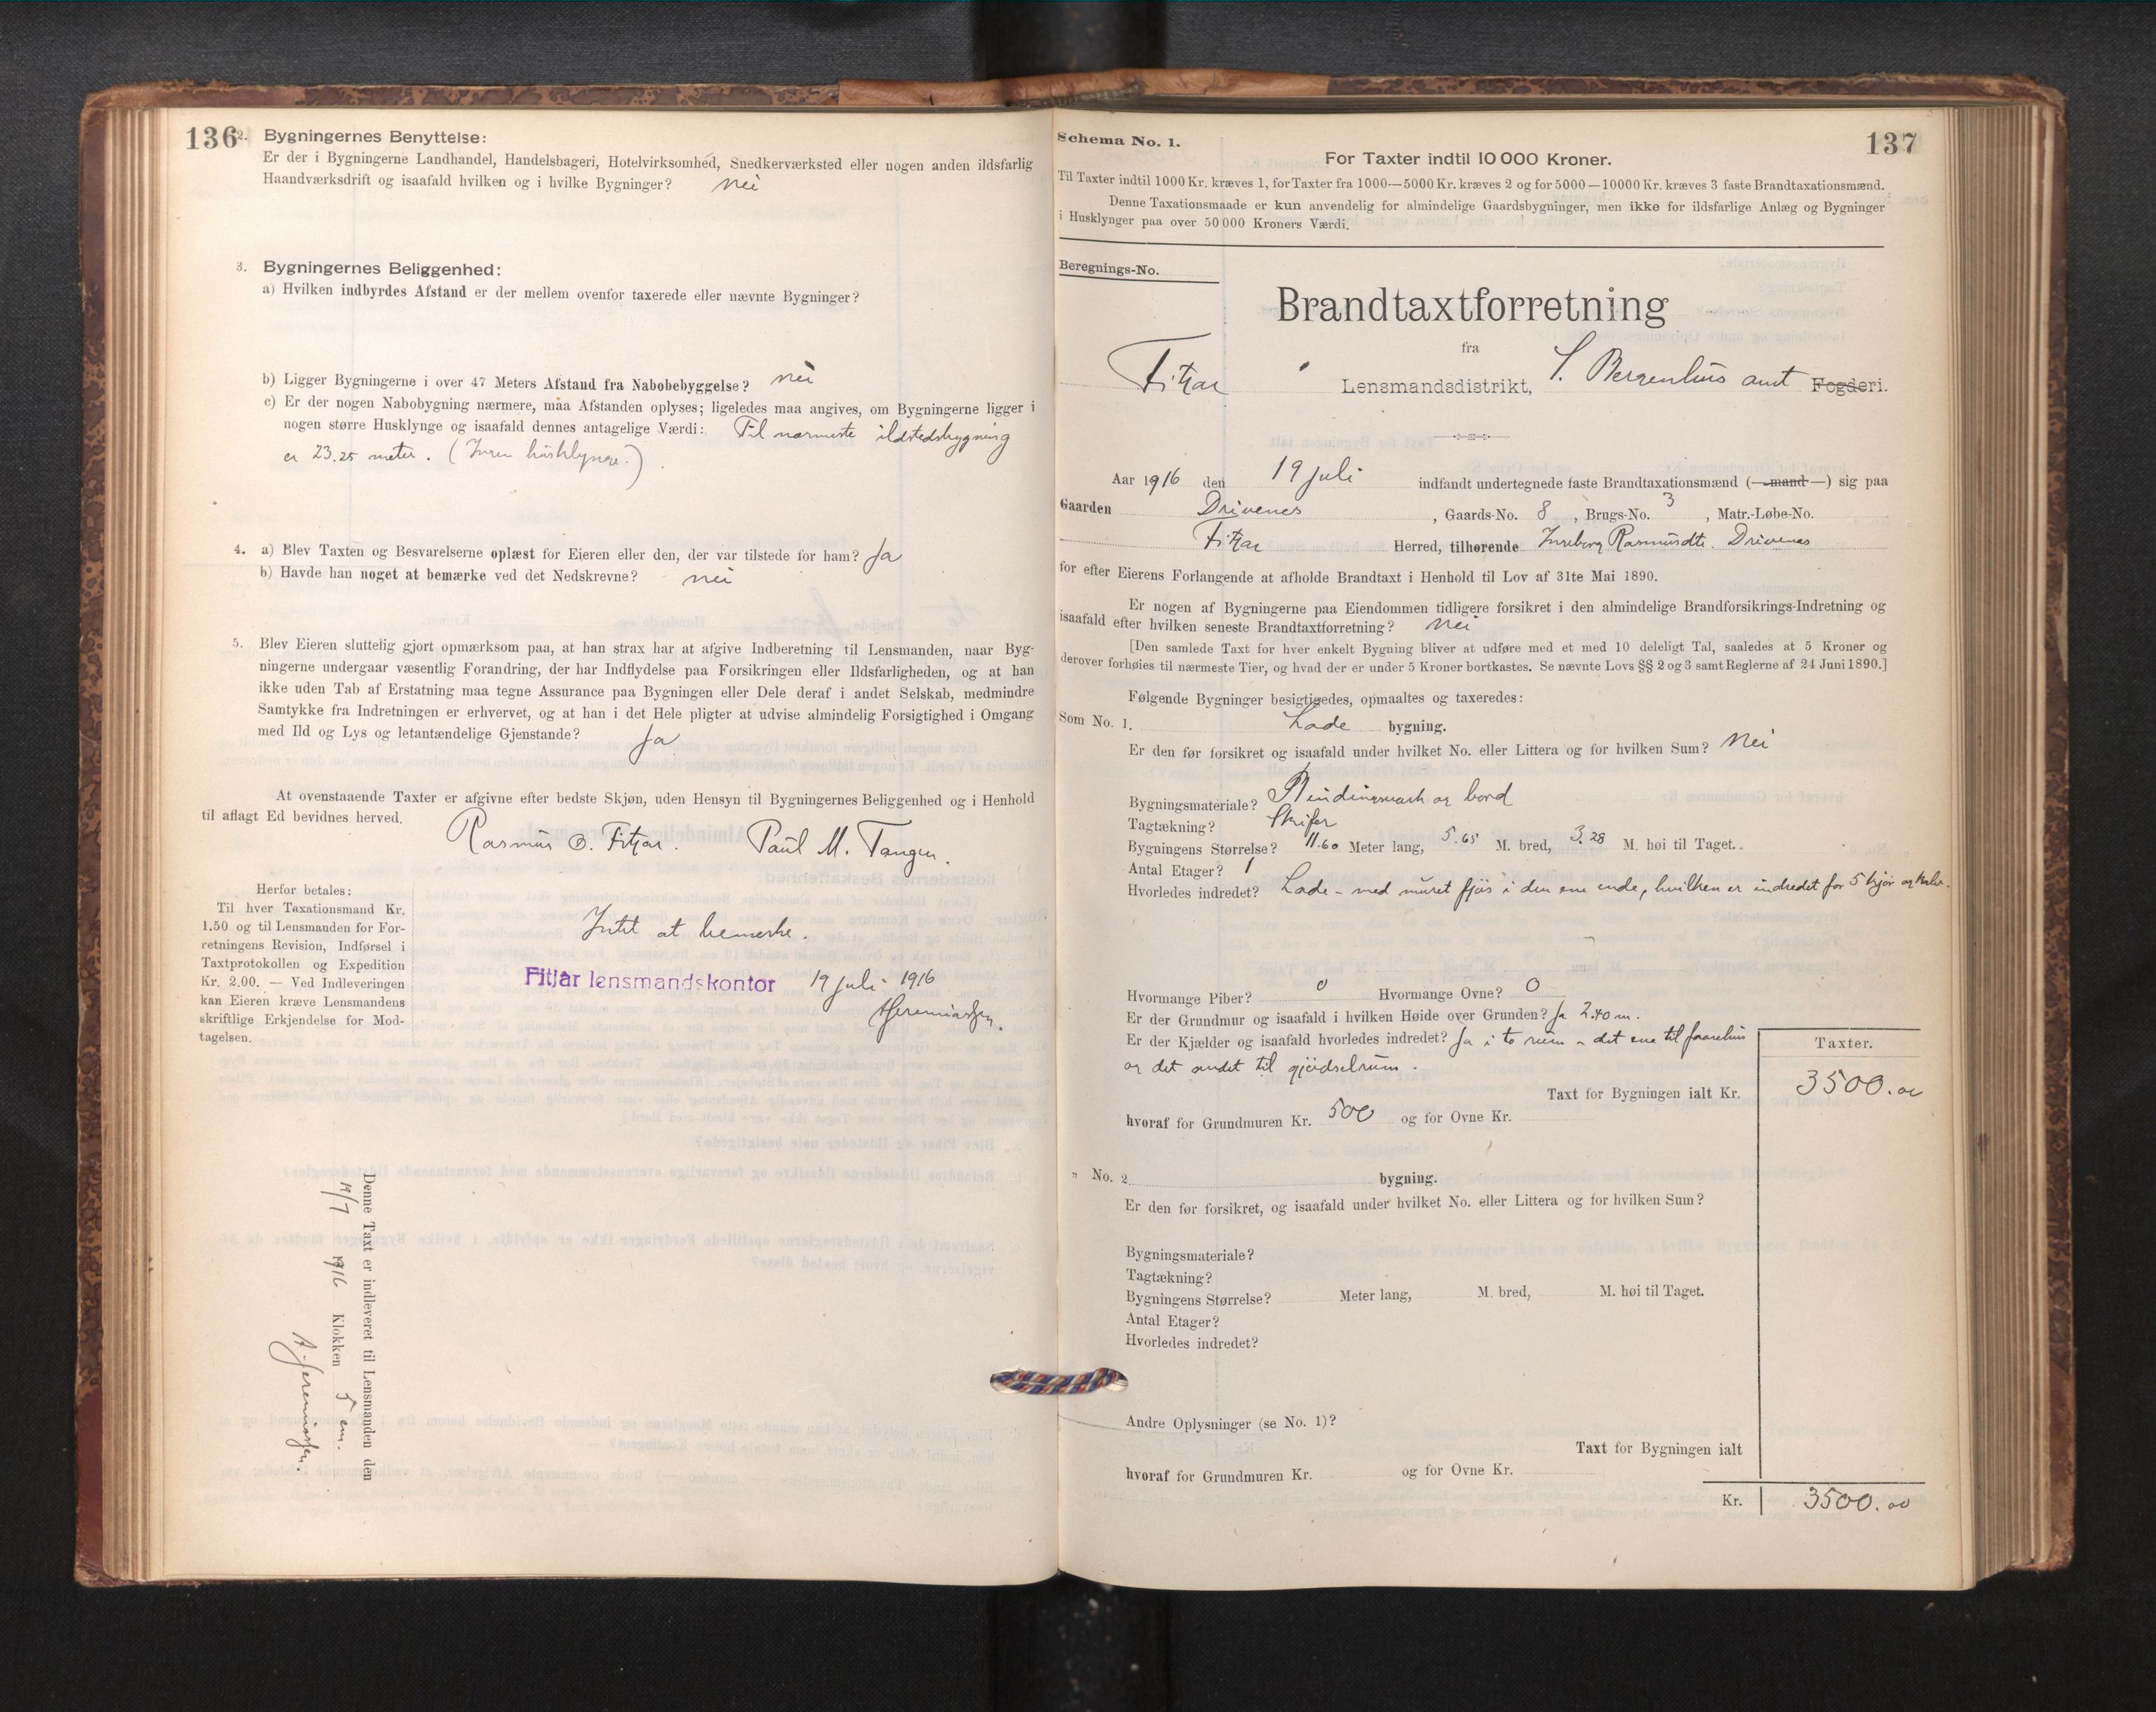 136
2. Bygningernes Benyttelse:
Er der i Bygningerne Landhandel, Handelsbageri, Hotelvirksomhed, Snedkerværksted eller nogen anden ildsfarlig
Haandværksdrift og isaafald hvilken og i hvilke Bygninger? nei
3. Bygningernes Beliggenhed:
a) Hvilken indbyrdes Afstand er der mellem ovenfor taxerede eller nævnte Bygninger?
b) Ligger Bygningerne i over 47 Meters Afstand fra Nabobebyggelse? nei
c) Er der nogen Nabobygning nærmere, maa Afstanden oplyses; ligeledes maa angives, om Bygningerne ligger i
nogen større Husklynge og isaafald dennes antagelige Værdi: Til nærmeste ildstedsbygning
er 23.25 meter. (Ingen husklynge.)
4. a) Blev Taxten og Besvarelserne oplæst for Eieren eller den, der var tilstede for ham? Ja
b) Havde han noget at bemærke ved det Nedskrevne? nei
5. Blev Eieren sluttelig gjort opmærksom paa, at han strax har at afgive Indberetning til Lensmanden, naar Byg-
ningerne undergaar væsentlig Forandring, der har Indflydelse paa Forsikringen eller Ildsfarligheden, og at han
ikke uden Tab af Erstatning maa tegne Assurance paa Bygningen eller Dele deraf i andet Selskab, medmindre
Samtykke fra Indretningen er erhvervet, og at han i det Hele pligter at udvise almindelig Forsigtighed i Omgang
med Ild og Lys og letantændelige Gjenstande? Ja
At ovenstaaende Taxter er afgivne efter bedste Skjøn, uden Hensyn til Bygningernes Beliggenhed og i Henhold
til aflagt Ed bevidnes herved.
Rasmus O. Fitjar. Paul M. Tangen.
Herfor betales:
Til hver Taxationsmand Kr.
1.50 og til Lensmanden for For-
retningens Revision, Indførsel i
Taxtprotokollen og Expedition
Kr. 2.00. — Ved Indleveringen
kan Eieren kræve Lensmandens
skriftlige Erkjendelse for Mod-
tagelsen.
Intet at bemerke.
Fitjar lensmandskontor 19 juli 1916
AJeremiassen.
Denne Taxt er indleveret til Lensmanden den
19/7 1916 Klokken 5 em.
A. Jeremiassen.
137
Schema No. 1.
For Taxter indtil 10 000 Kroner.
Til Taxter indtil 1000 Kr. kræves 1, for Taxter fra 1000—5000 Kr. kræves 2 og for 5000—10000 Kr. kræves 3 faste Brandtaxationsmænd.
Denne Taxationsmaade er kun anvendelig for almindelige Gaardsbygninger, men ikke for ildsfarlige Anlæg og Bygninger
i Husklynger paa over 50 000 Kroners Værdi.
Beregnings-No.
Brandtaxtforretning
fra
Fitjar Lensmandsdistrikt, S. Bergenhus amt Fogderi.
Aar 1916 den 19 juli indfandt undertegnede faste Brandtaxationsmænd (— mand —) sig paa
Gaarden Drivenes, Gaards-No. 8, Brugs-No. 3, Matr.-Løbe-No.
Fitjar Herred, tilhørende Ingeborg Rasmusdtr. Drivenes
for efter Eierens Forlangende at afholde Brandtaxt i Henhold til Lov af 31te Mai 1890.
Er nogen af Bygningerne paa Eiendommen tidligere forsikret i den almindelige Brandforsikrings-Indretning og
isaafald efter hvilken seneste Brandtaxtforretning? Nei
[Den samlede Taxt for hver enkelt Bygning bliver at udføre med et med 10 deleligt Tal, saaledes at 5 Kroner og
derover forhøies til nærmeste Tier, og hvad der er under 5 Kroner bortkastes. Se nævnte Lovs §§ 2 og 3 samt Reglerne af 24 Juni 1890.]
Følgende Bygninger besigtigedes, opmaaltes og taxeredes:
Som No. 1. Lade bygning.
Er den før forsikret og isaafald under hvilket No. eller Littera og for hvilken Sum? Nei
Bygningsmateriale? Bindingsverk og bord
Tagtækning? Skifer
Bygningens Størrelse? 11.60 Meter lang, 5.65 M. bred, 3.28 M. høi til Taget.
Antal Etager? 1
Hvorledes indredet? Lade - med muret fjøs i den ene ende, hvilken er indredet for 5 kjør og kalv.
Hvormange Piber? 0 Hvormange Ovne? 0
Er der Grundmur og isaafald i hvilken Høide over Grunden? Ja 2.40 m.
Er der Kjælder og isaafald hvorledes indredet? Ja i to rum - det ene til faarehus
og det andet til gjødselrum.
Taxter.
Taxt for Bygningen ialt Kr. 3500.00
hvoraf for Grundmuren Kr. 500 og for Ovne Kr.
" No. 2 bygning.
Er den før forsikret, og isaafald under hvilket No. eller Littera og for hvilken Sum?
Bygningsmateriale?
Tagtækning?
Bygningens Størrelse? Meter lang, M. bred, M. høi til Taget.
Antal Etager?
Hvorledes indredet?
Andre Oplysninger (se No. 1)?
Taxt for Bygningen ialt
hvoraf for Grundmuren Kr. og for Ovne Kr.
Kr. 3500.00